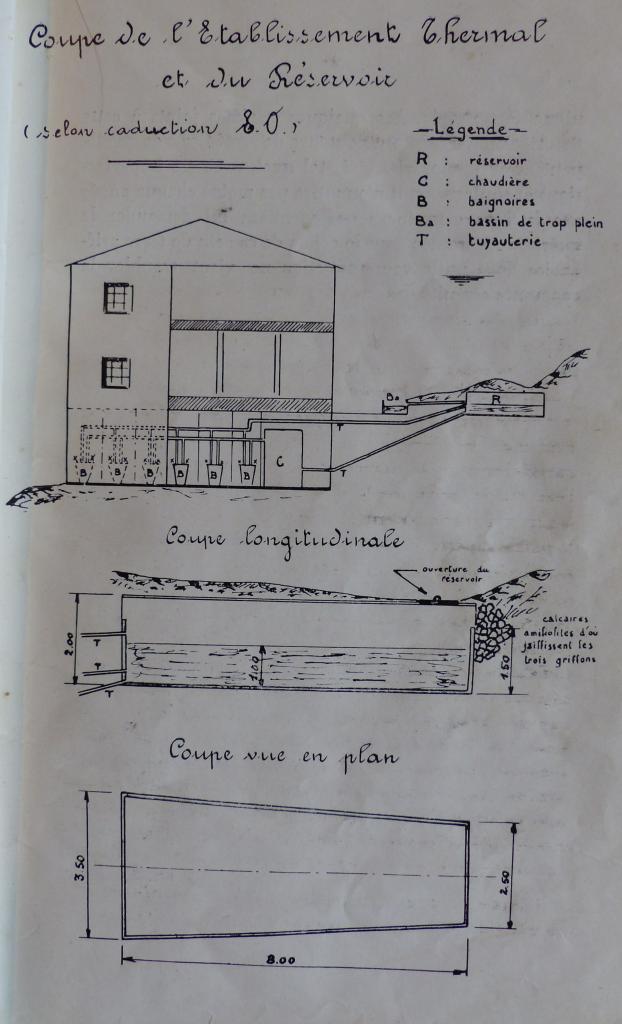 Coupe de l'Etablissement Thermal
et du Réservoir
(selon caduction E.O.)
Légende
R : réservoir
C : chaudière
B : baignoires
Ba : bassin de trop plein
T : tuyauterie
Ba
R
T
C
B
B
B
B
B
B
T
Coupe longitudinale
ouverture du
réservoir
2.00
T
T
T
1.00
1.50
calcaires
amitiolites d'où
jaillissent les
trois griffons
Coupe vue en plan
3.50
2.50
8.00